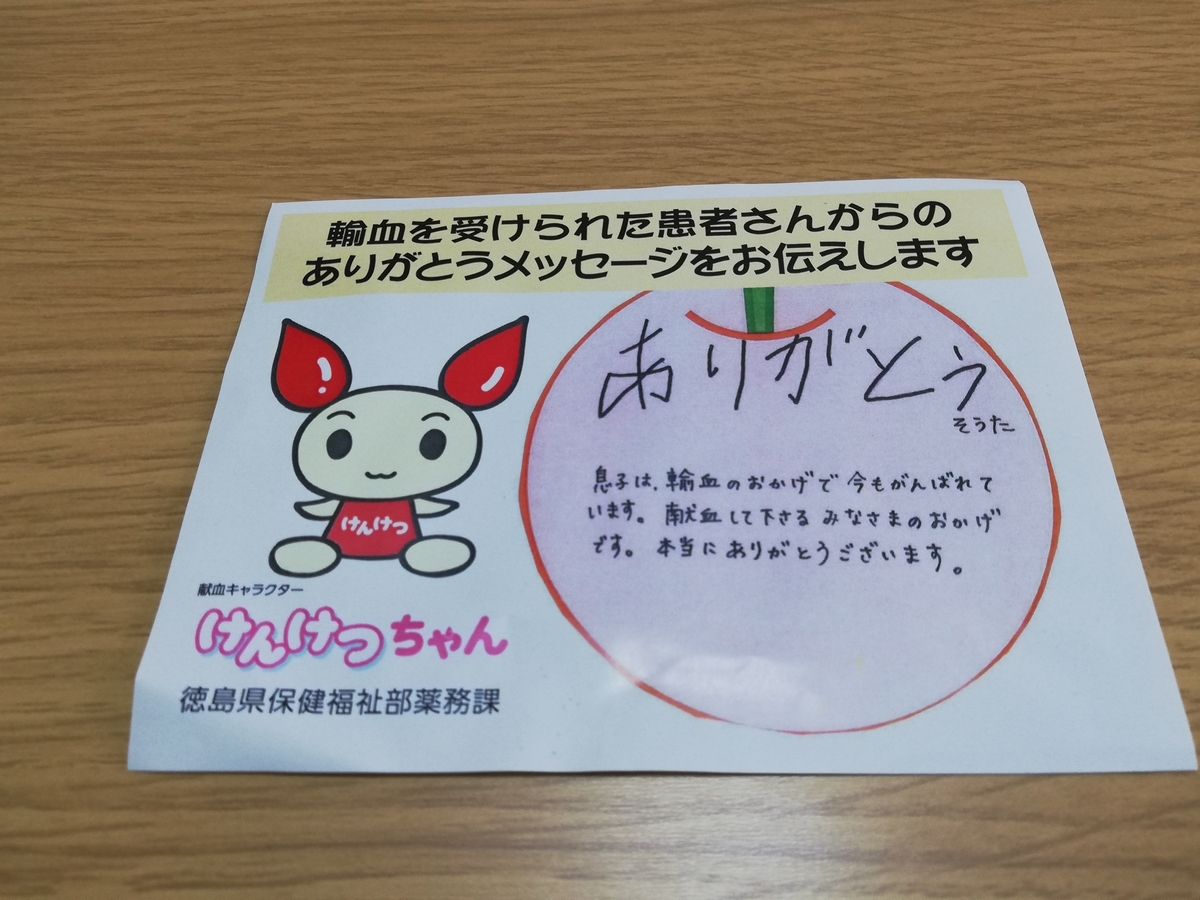 輸血を受けられた患者さんからの
ありがとうメッセージをお伝えします
ありがとう
そうた
息子は、輸血のおかげで今もがんばれて
います。献血して下さるみなさまのおかげ
です。本当にありがとうございます。
けんけつ
献血キャラクター
けんけつちゃん
徳島県保健福祉部薬務課